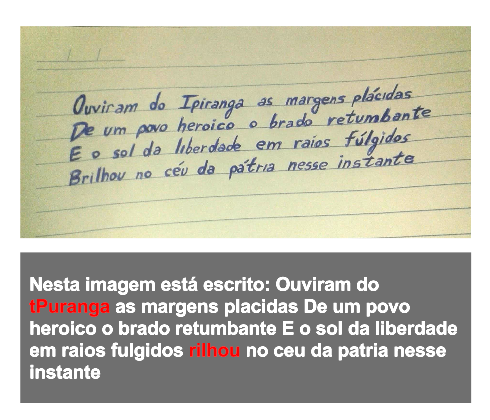 Ouviram do Ipiranga as margens plácidas
De um povo heroico o brado retumbante
E o sol da liberdade em raios fúlgidos
Brilhou no céu da pátria nesse instante
Nesta imagem está escrito: Ouviram do
tPuranga as margens placidas De um povo
heroico o brado retumbante E o sol da liberdade
em raios fulgidos rilhou no ceu da patria nesse
instante